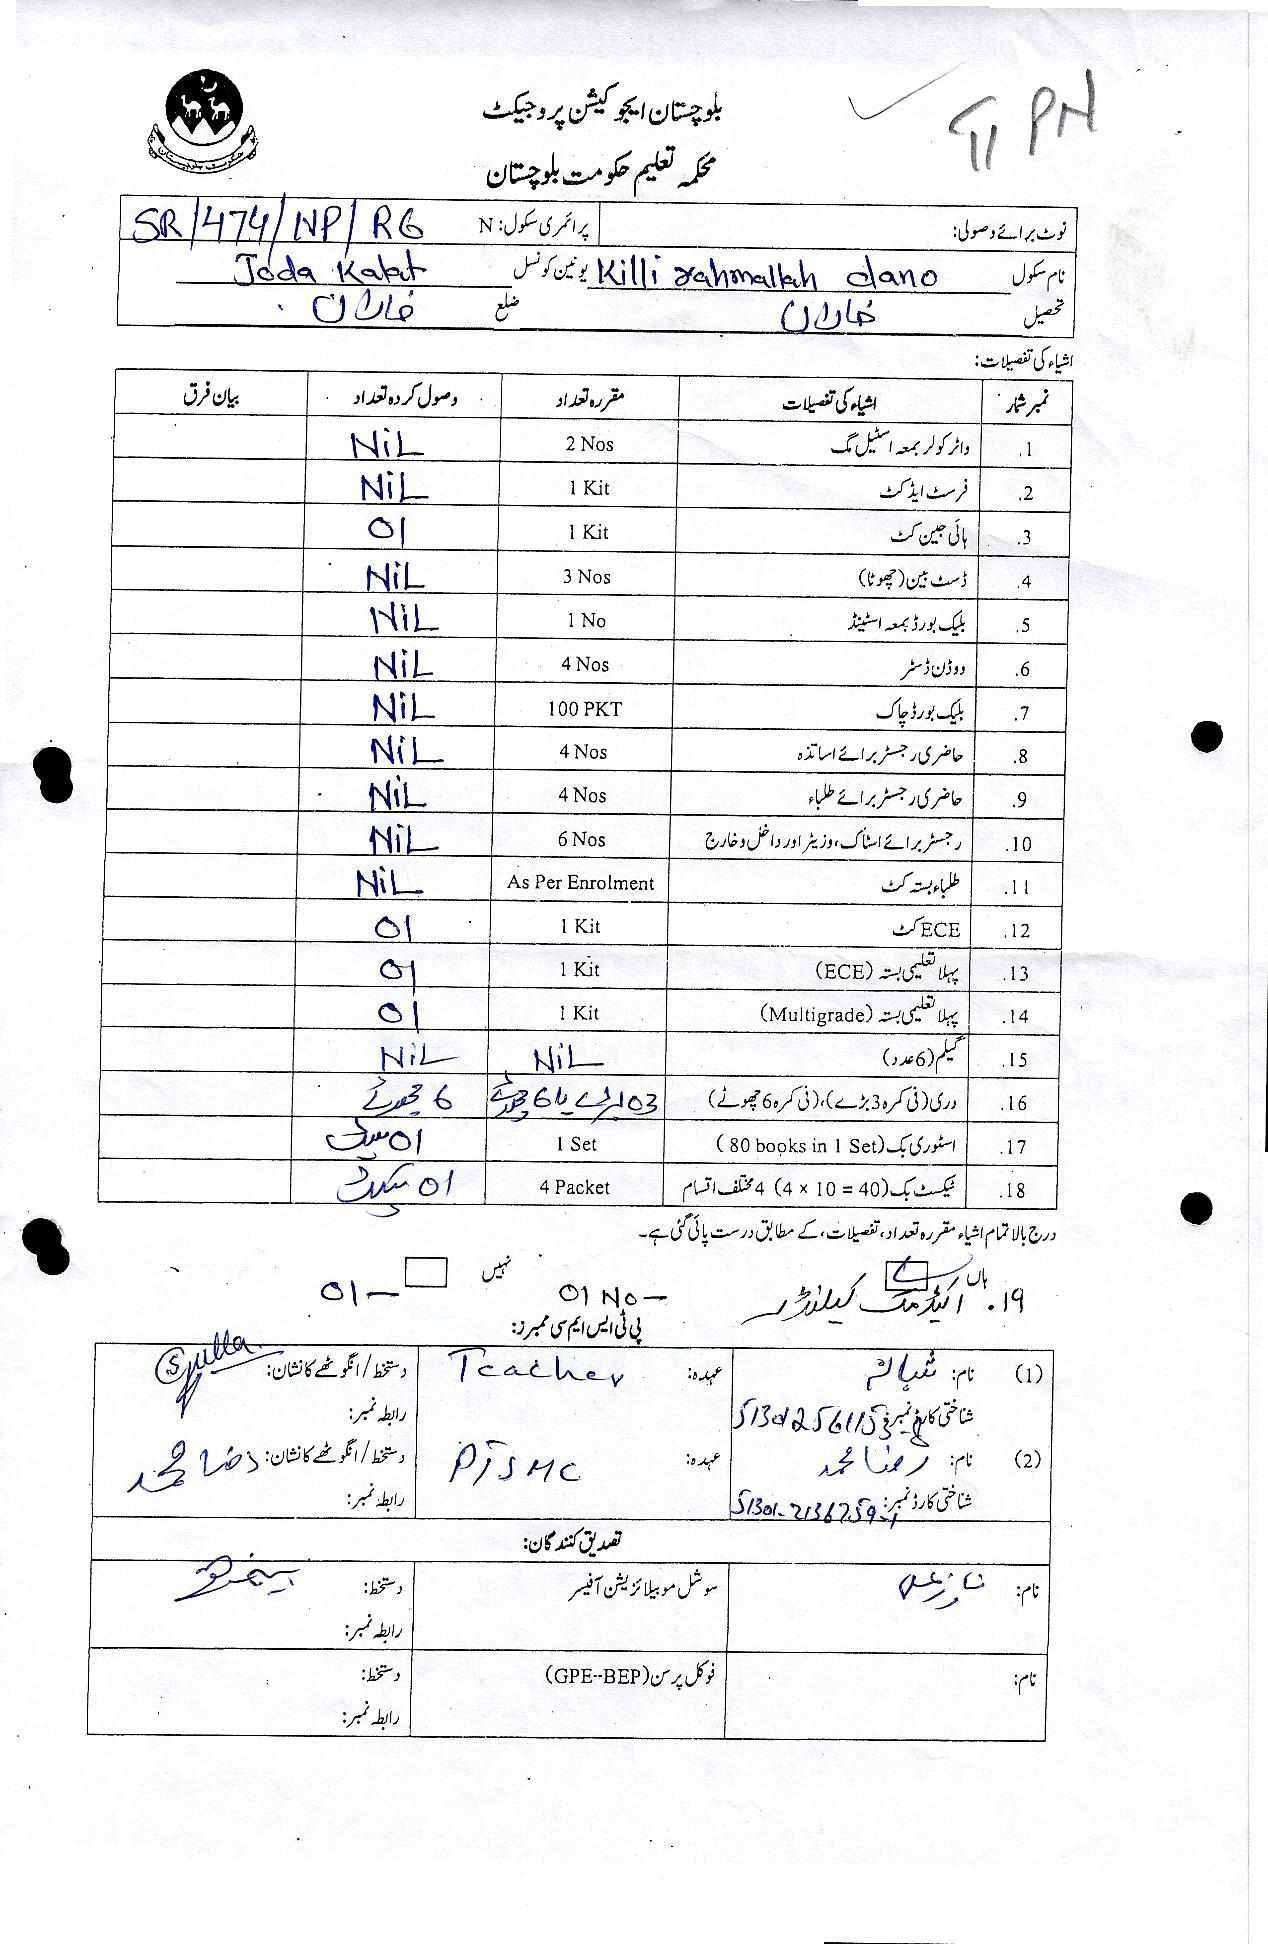 PN
بلوچستان ایجوکیشن پروجیکٹ
محکمہ تعلیم حکومت بلوچستان
نوٹ برائے وصولی: پرائمری سکول: N SR/474/NP/RG
نام سکول Killi rahmallah dano یونین کونسل Joda Kalat
تحصیل خاران ضلع خاران
اشیاء کی تفصیلات:
نمبر شمار اشیاء کی تفصیلات مقررہ تعداد وصول کردہ تعداد بیان فرق
1. واٹر کولر بمعہ اسٹیل مگ 2 Nos NiL
2. فرسٹ ایڈ کٹ 1 Kit NiL
3. ہائی جین کٹ 1 Kit 01
4. ڈسٹ بین (چھوٹا) 3 Nos NiL
5. بلیک بورڈ بمعہ اسٹینڈ 1 No NiL
6. ووڈن ڈسٹر 4 Nos NiL
7. بلیک بورڈ چاک 100 PKT NiL
8. حاضری رجسٹر برائے اساتذہ 4 Nos NiL
9. حاضری رجسٹر برائے طلباء 4 Nos NiL
10. رجسٹر برائے اسٹاک، وزیٹر اور داخل و خارج 6 Nos NiL
11. طلباء بستہ کٹ As Per Enrolment NiL
12. ECE کٹ 1 Kit 01
13. پہلا تعلیمی بستہ (ECE) 1 Kit 01
14. پہلا تعلیمی بستہ (Multigrade) 1 Kit 01
15. گیلم (6 عدد) NiL NiL
16. دری (فی کمرہ 3 بڑے)، (فی کمرہ 6 چھوٹے) 03 بڑے یا 6 چھوٹے 6 چھوٹے
17. اسٹوری بک (80 books in 1 Set) 1 Set 01 سیٹ
18. ٹیکسٹ بک (4 x 10 = 40) 4 مختلف اقسام 4 Packet 01 پیکٹ
درج بالا تمام اشیاء مقررہ تعداد، تفصیلات، کے مطابق درست پائی گئی ہے۔
ہاں نہیں
۱۹. اکیڈمک کیلنڈر 01 No — 01 —
پی ٹی ایس ایم سی ممبرز:
(1) نام: عہدہ: Teacher دستخط / انگوٹھے کا نشان:
شناختی کارڈ نمبر: رابطہ نمبر:
(2) نام: رضا محمد عہدہ: PTSMC دستخط / انگوٹھے کا نشان: رضا محمد
شناختی کارڈ نمبر: 51301-2136759-1 رابطہ نمبر:
تصدیق کنندگان:
نام: سوشل موبیلائزیشن آفیسر دستخط:
رابطہ نمبر:
نام: فوکل پرسن (GPE--BEP) دستخط:
رابطہ نمبر: